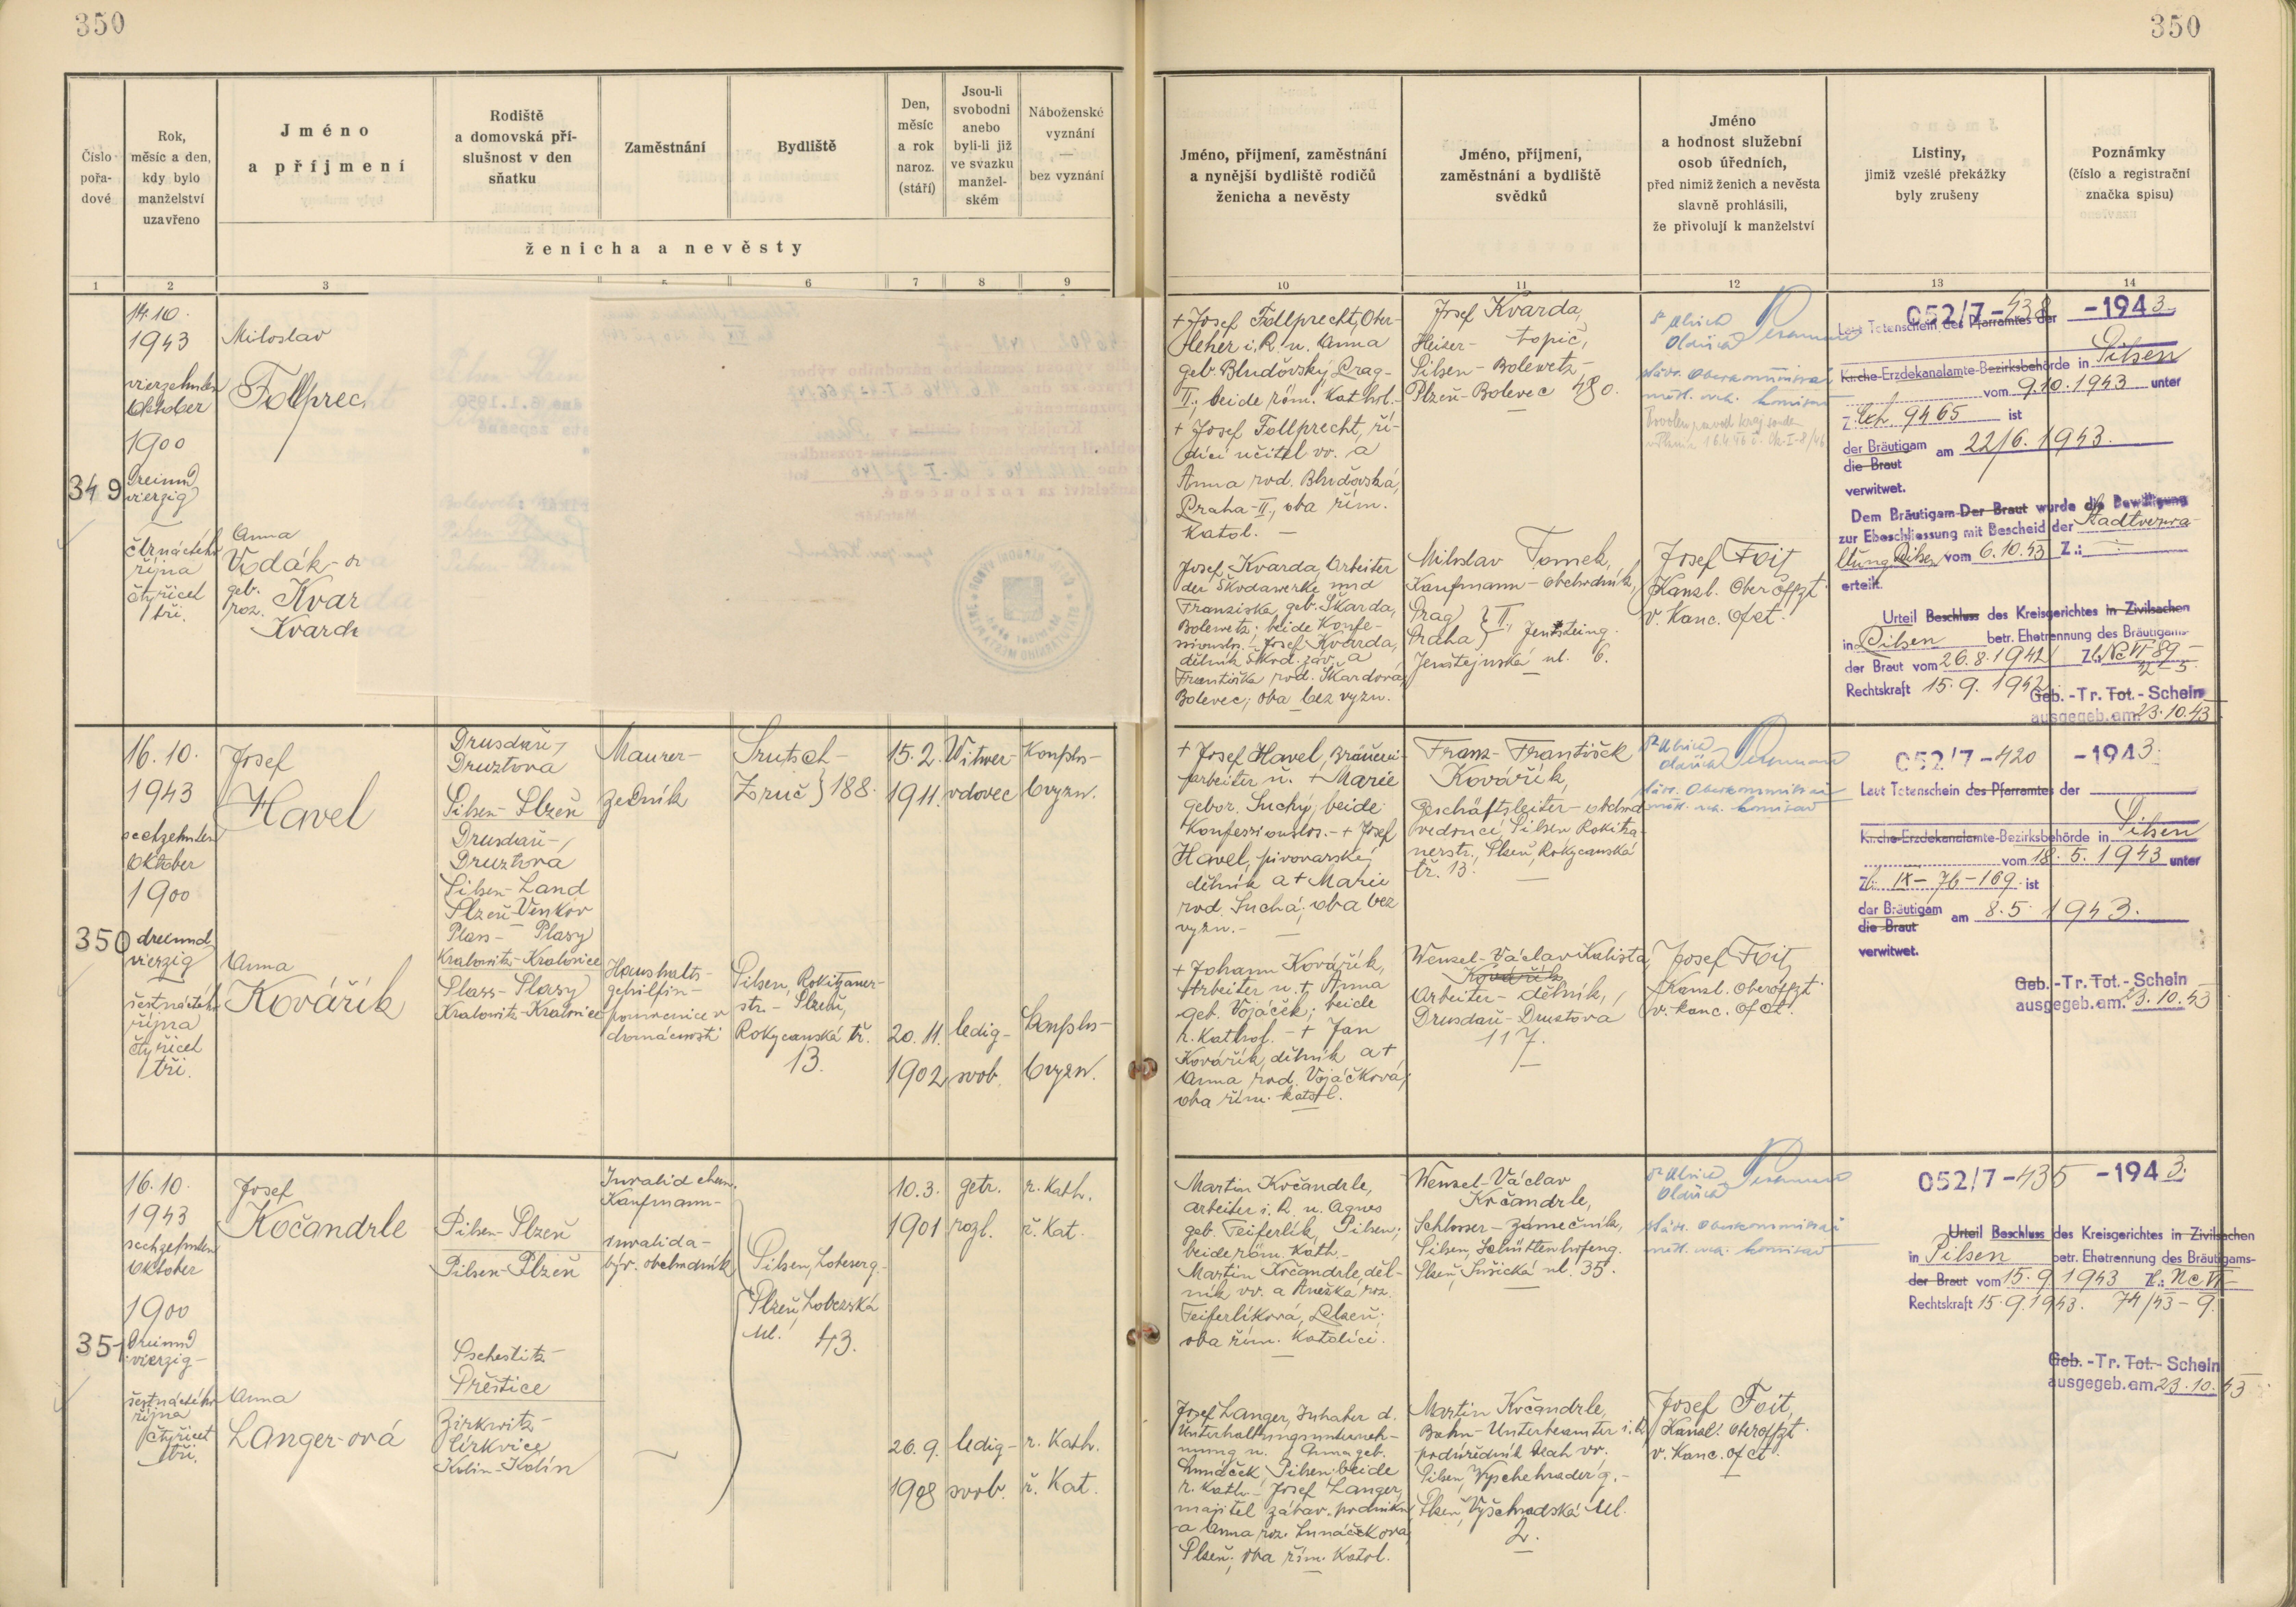 350
350
Číslo pořa-dové
Rok, měsíc a den, kdy bylo manželství uzavřeno
Jméno a příjmení
Rodiště a domovská pří-slušnost v den sňatku
Zaměstnání
Bydliště
Den, měsíc a rok naroz. (stáří)
Jsou-li svobodni anebo byli-li již ve svazku manžel-ském
Náboženské vyznání — bez vyznání
ženicha a nevěsty
Jméno, příjmení, zaměstnání a nynější bydliště rodičů ženicha a nevěsty
Jméno, příjmení, zaměstnání a bydliště svědků
Jméno a hodnost služební osob úředních, před nimiž ženich a nevěsta slavně prohlásili, že přivolují k manželství
Listiny, jimiž vzešlé překážky byly zrušeny
Poznámky (číslo a registrační značka spisu)
1
2
3
6
7
8
9
10
11
12
13
14
349
14. 10.
1943
vierzehnten
Oktober
1900
dreiund
vierzig
čtrnáctého
října
čtyřicet
tři.
Miloslav
Follprec
Anna
Vodák-o
geb.
roz. Kvar
Kvardo
+ Josef Follprecht, Ober-
lehrer i. R. u. Anna
geb. Bludovský, Prag-
II.; beide röm. kathol. -
+ Josef Follprecht, ří-
dící učitel vv. a
Anna rod. Bludovská,
Praha-II., oba řím.
katol. —
Josef Kvarda, Arbeiter
der Škodawerke und
Franziska, geb. Škarda,
Bolewetz; beide Konfe-
ssionslos. - Josef Kvarda,
dělník Škod. záv. a
Františka rod. Škardová,
Bolevec; oba bez vyzn.
Josef Kvarda,
Heizer - topič,
Pilsen - Bolewetz
Plzeň - Bolevec 480.
Miloslav Tomek,
Kaufmann - obchodník,
Prag
Praha } II., Jensteing.
Jenštejnská ul. 6.
Josef Foit
Kanzl. Oberoffzt.
v. kanc. ofct.
052/7-438 -1943.
Laut Totenschein des Pfarramtes der
Kirche-Erzdekanalamte-Bezirksbehörde in Pilsen
vom 9.10.1943 unter
9465 ist
der Bräutigam am 22/6. 1943.
die Braut
verwitwet.
Dem Bräutigam-Der Braut wurde die Bewilligung
zur Eheschliessung mit Bescheid der Stadtverwa-
ltung Pilsen vom 6.10.43 Z.: —
erteilt.
Urteil Beschluss des Kreisgerichtes in Zivilsachen
in Pilsen betr. Ehetrennung des Bräutigams-
der Braut vom 26.8.1942 Zl.: Nc VI 89 -
42 - 5.
Rechtskraft 15.9.1942.
Geb.-Tr. Tot.-Schein
ausgegeb. am 23.10.43
350
16. 10.
1943
sechzehnten
Oktober
1900
dreiund
vierzig
šestnáctého
října
čtyřicet
tři.
Josef
Havel
Drusdau-
Druztova
Pilsen - Plzeň
Drusdau-
Druztova
Pilsen-Land
Plzeň-Venkov
Maurer-
zedník
Srutsch-
Zruč } 188.
15. 2.
1911.
Witwer-
vdovec
Konfslos-
bvyzn.
Anna
Kovářík
Plass - Plasy
Kralowitz - Kralovice
Plass - Plasy
Kralowitz - Kralovice
Haushalts-
gehilfin-
pomocnice v
domácnosti
Pilsen, Rokitzaner-
str. - Plzeň,
Rokycanská tř.
13.
20. 11.
1902
ledig-
svob.
Konfslos-
bvyzn.
+ Josef Havel, Bräuerei-
arbeiter u. + Marie
gebor. Suchý; beide
Konfessionslos. - + Josef
Havel, pivovarský
dělník a + Marie
rod. Suchá; oba bez
vyzn. -
+ Johann Kovářík,
Arbeiter u. + Anna
geb. Vojáček; beide
r. kathol. - + Jan
Kovářík, dělník a +
Anna rod. Vojáčková;
oba řím. katol.
Franz - František
Kovářík,
Geschäftsleiter - obchod
vedoucí, Pilsen Rokitza-
nerstr., Plzeň, Rokycanská
tř. 13.
Wenzel - Václav Kalista,
Kovářík
Arbeiter - dělník,
Drusdau - Druztova
117.
Josef Foit,
Kanzl. Oberoffzt.
v. kanc. ofct.
052/7-420 -1943.
Laut Totenschein des Pfarramtes der
Kirche-Erzdekanalamte-Bezirksbehörde in Pilsen
vom 18.5.1943 unter
Zl.: IX-76-169 ist
der Bräutigam am 8.5. 1943.
die Braut
verwitwet.
Geb.-Tr. Tot.-Schein
ausgegeb. am 23.10.43
351
16. 10.
1943
sechzehnten
Oktober
1900
dreiund
vierzig-
šestnáctého
října
čtyřicet
tři.
Josef
Kočandrle
Pilsen - Plzeň
Pilsen - Plzeň
Invalid ehem.
Kaufmann-
invalida-
býv. obchodník
Pilsen, Lobeserg.
Plzeň, Lobezská
ul. 43.
10. 3.
1901
getr.
rozl.
r. kath.
ř. kat.
Anna
Langer-ová
Pschestitz-
Přeštice
Zirkwitz-
Církvice
Kolin - Kolín
26. 9.
1908
ledig-
svob.
r. kath.
ř. kat.
Martin Kočandrle,
Arbeiter i. R. u. Agnes
geb. Feiferlík, Pilsen;
beide röm. kath. -
Martin Kočandrle, děl-
ník vv. a Anežka roz.
Feiferlíková, Plzeň;
oba řím. katolíci.
Josef Langer, Inhaber d.
Unterhaltungsunterneh-
mung u. Anna geb.
Lunáček, Pilsen; beide
r. kath. - Josef Langer,
majitel zábav. podniku
a Anna roz. Lunáčková,
Plzeň; oba řím. katol.
Wenzel - Václav
Kočandrle,
Schlosser - zámečník,
Pilsen, Schüttenhofeng.
Plzeň, Sušická ul. 35.
Martin Kočandrle,
Bahn-Unterbeamter i. R.
podúředník drah vv.,
Pilsen, Wyschehrader g. -
Plzeň, Vyšehradská ul.
2.
Josef Foit,
Kanzl. Oberoffzt.
v. kanc. ofct.
052/7-435 -1943.
Urteil Beschluss des Kreisgerichtes in Zivilsachen
in Pilsen betr. Ehetrennung des Bräutigams-
der Braut vom 15.9.1943 Zl.: Nc VI-
Rechtskraft 15.9.1943. 74/43-9.
Geb.-Tr. Tot.-Schein
ausgegeb. am 23.10.43